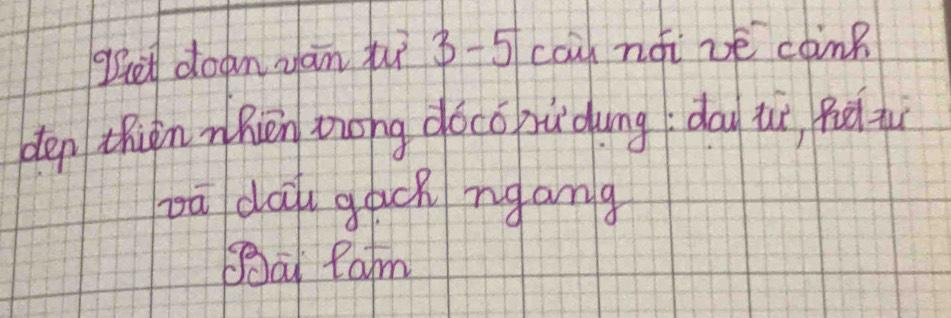 Viết đoạn văn từ 3-5 câu nói về cảnh
đẹp thiên nhiên trong đó có sử dụng: đại từ, kết từ
và dấu gạch ngang
Bài làm